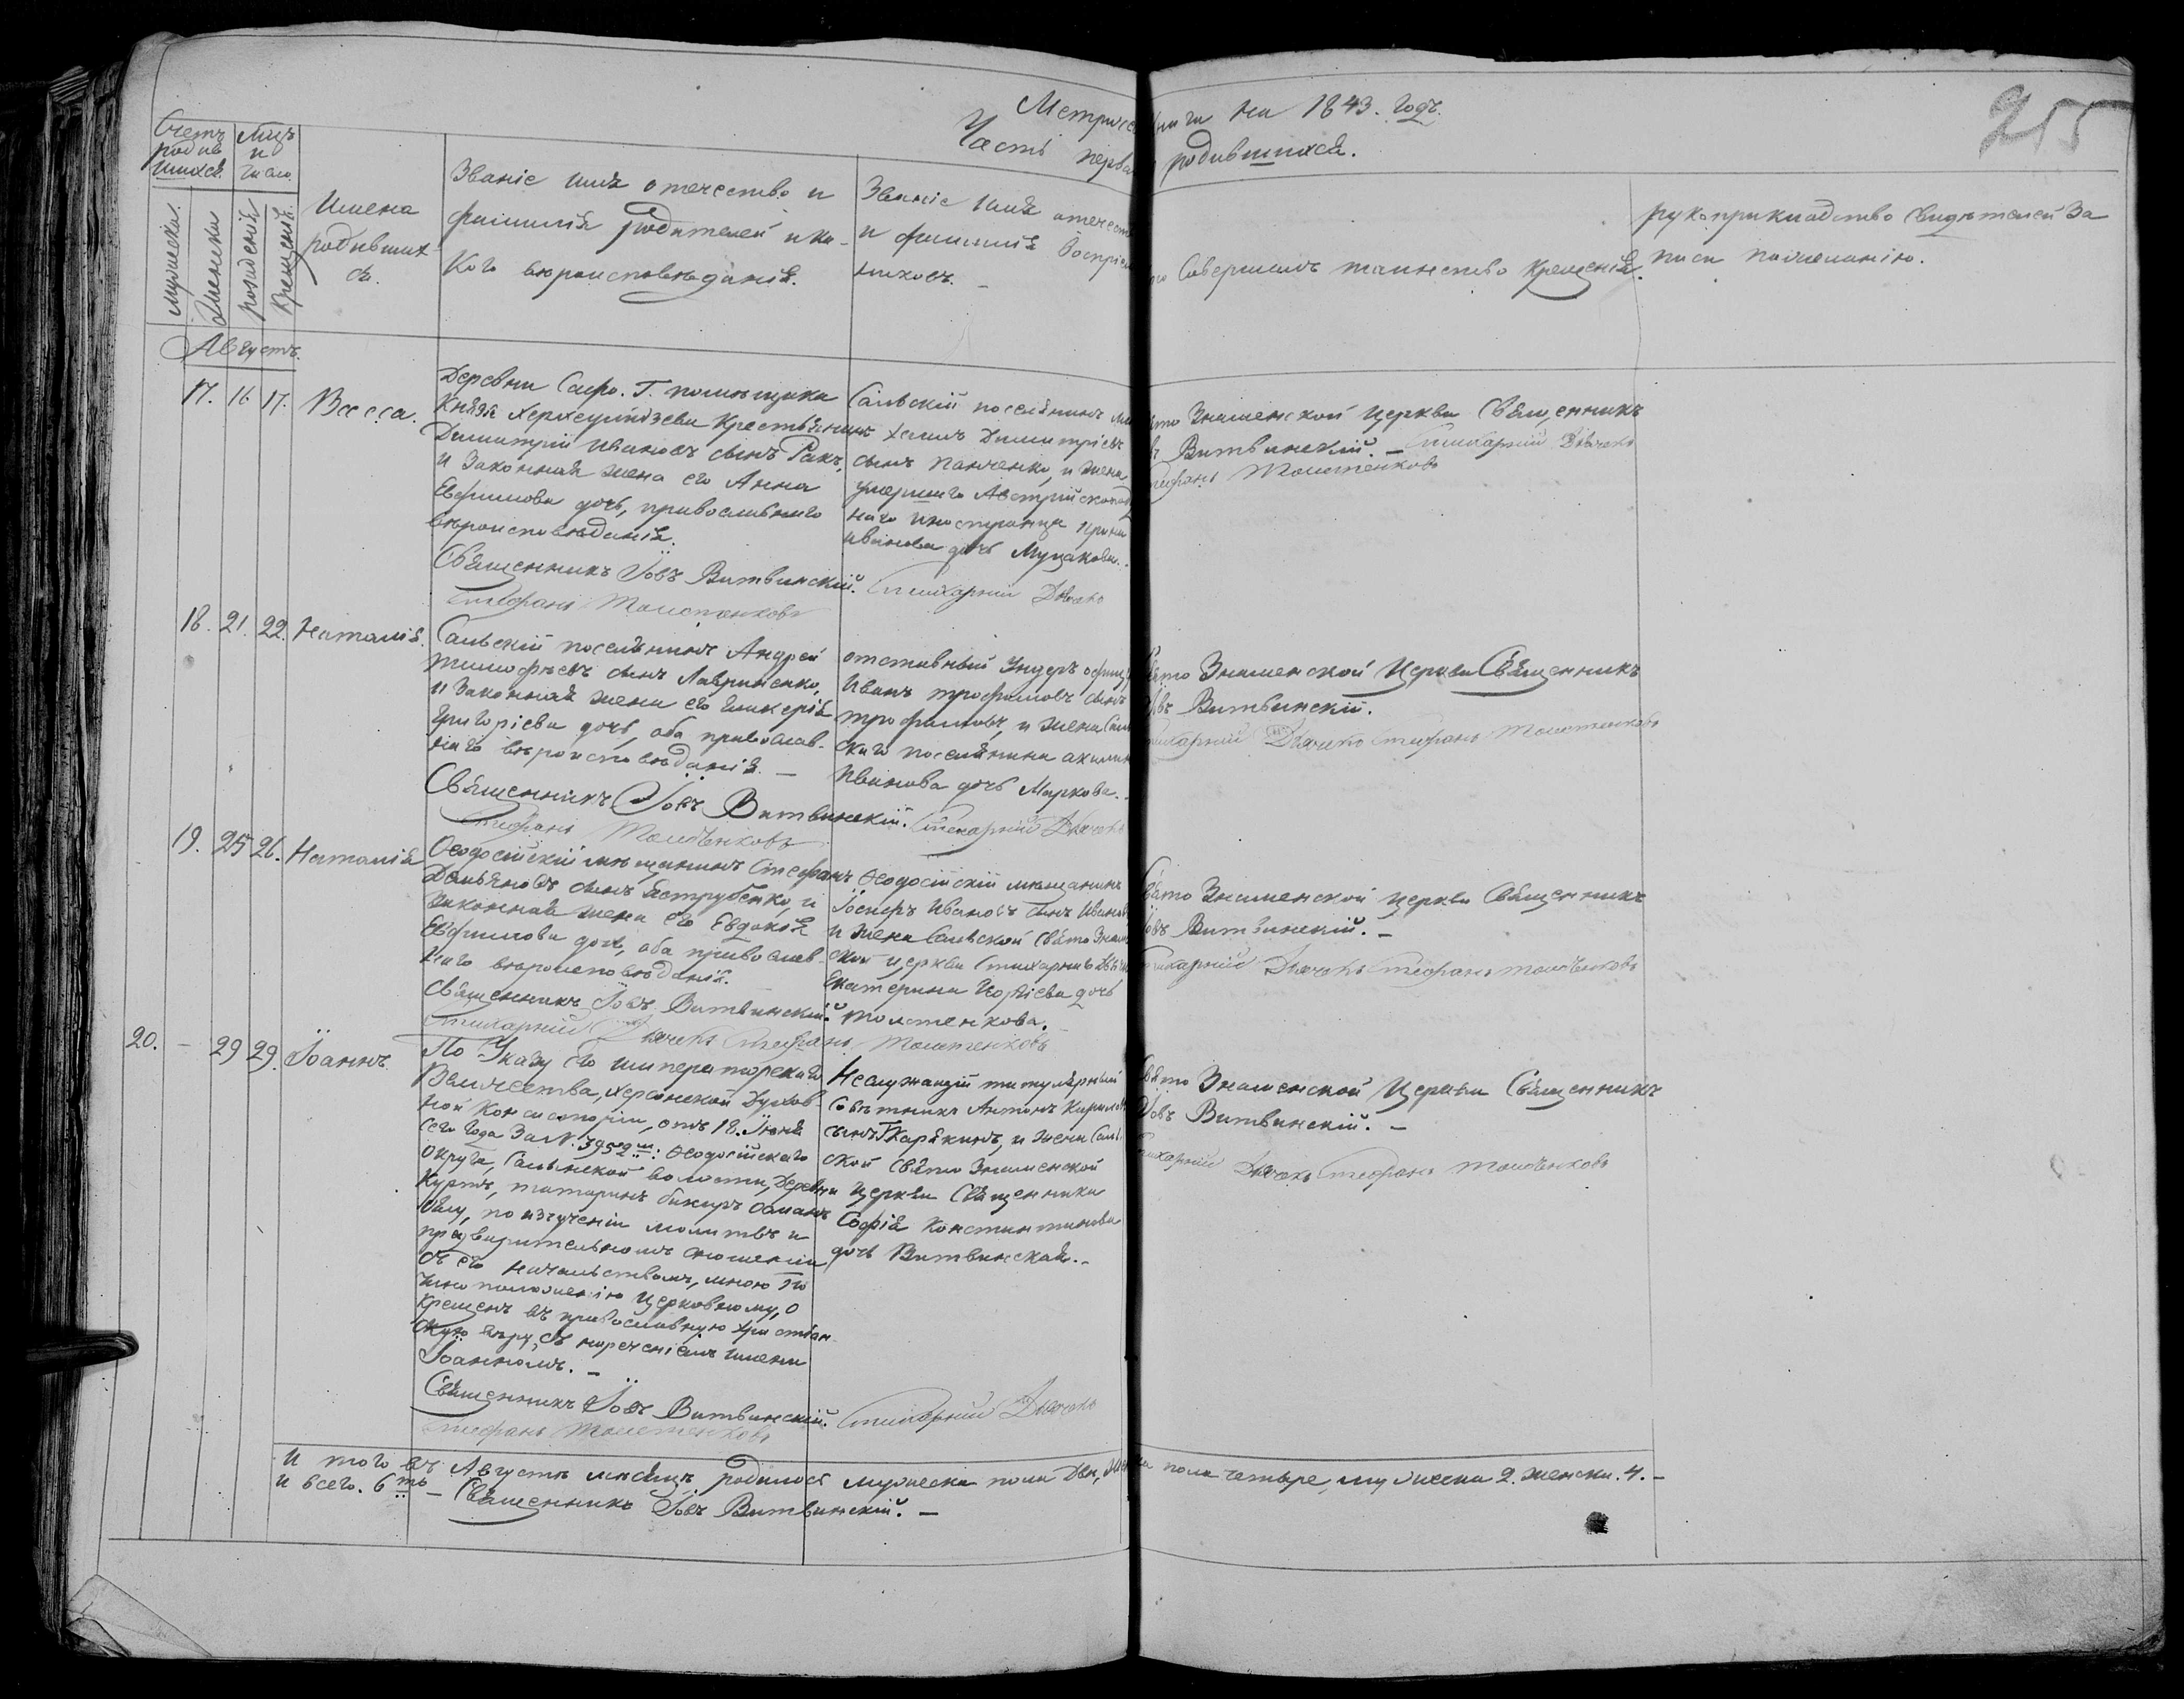 215
Метриче ниги на 1843. Годъ.
Часть перва родившихся.
Счетъ родив шихся.
Мцъ и число.
Мужеска.
Женска
рожденія
Крещенія.
Имена родивших ся.
Званіе имя отечество и
фамилія родителей и ка-
кого вѣроисповѣданія.
Званіе имя отечест
и фамилія воспріем
никовъ.
Совершалъ таинство крещенія.
рукоприкладство свидѣтелей за
писи по желанію.
Августъ.
17. 16 17. Васса.
Деревни помѣщика
Князя Херхеулидзева Крестьянинъ
Димитрій Ивановъ сынъ Ракъ,
и законная жена его Анна
Евфимова дочь, православнаго
вѣроисповѣданія.
Священникъ Іовъ Витвинскій. Стихарній Дьячекъ
Стефанъ Толстенковъ
Сальскій поселянинъ
Димитріевъ
сынъ Панченко, и жена
умершаго Австрійскопод
наго иностранца Ирина
Иванова дочь
Знаменской церкви Священникъ
Витвинскій. – Стихарній Дьячекъ
Толстенковъ
18. 21. 22. Наталія.
Сальскій поселянинъ Андрей
Тимофѣевъ сынъ Лавриненко,
и законная жена его Гликерія
Григоріева дочь, оба православ-
наго вѣроисповѣданія. –
Священникъ Іовъ Витвинскій. Стихарній Дьячекъ
Стефанъ Толстенковъ
отставный Ундеръ офиц
Иванъ Трофимовъ сынъ
Трофимовъ, и жена Сал
скаго поселянина
Иванова дочь Маркова.
Знаменской Церкви Священникъ
Витвинскій.
Дьячекъ Стефанъ Толстенковъ
19. 25 26. Наталія
Ѳеодосійскій мѣщанинъ Стефанъ
Демьяновъ сынъ и
законная жена его Евдокія
Евфимова дочь, оба православ-
наго вѣроисповѣданія.
Священникъ Іовъ Витвинскій.
Стихарній Дьячекъ Стефанъ Толстенковъ
Ѳеодосійскій мѣщанинъ
Іосифъ Ивановъ сынъ Иванов
и жена Сальской Свято Знам
ской церкви Стихарнаго
Екатерина дочь
Толстенкова.
Знаменской церкви Священникъ
Витвинскій. –
Дьячекъ Стефанъ Толстенковъ
20. – 29 29. Іоаннъ.
По Указу Его Императорскаго
Величества, Херсонской Духов
ной Консисторіи, отъ 18. Іюня
сего года за N. 3952 Ѳеодосійскаго
Округа, Сальнской волости, деревни
татаринъ
по изученіи молитвъ и
предварительномъ сношеніи
съ его начальствомъ, мною по
чино положенію Церковному, о
крещенъ въ православную христіан
скую вѣру, съ нареченіемъ имени
Іоанномъ. –
Священникъ Іовъ Витвинскій. Стихарній Дьячекъ
Стефанъ Толстенковъ
Неслужащій титулярный
совѣтникъ Антонъ
сынъ Карякинъ, и жена Саль
ской Свято Знаменской
Церкви Священника
Софія Константинова
дочь Витвинская. –
Знаменской Церкви Священникъ
Іовъ Витвинскій. –
Дьячекъ Стефанъ Толстенковъ
И того въ Августѣ месяцѣ родилося мужеска пола два, жен ка пола четыре, мужеска 2. женска. 4. –
и всего. 6ть – Священникъ Іовъ Витвинскій. –